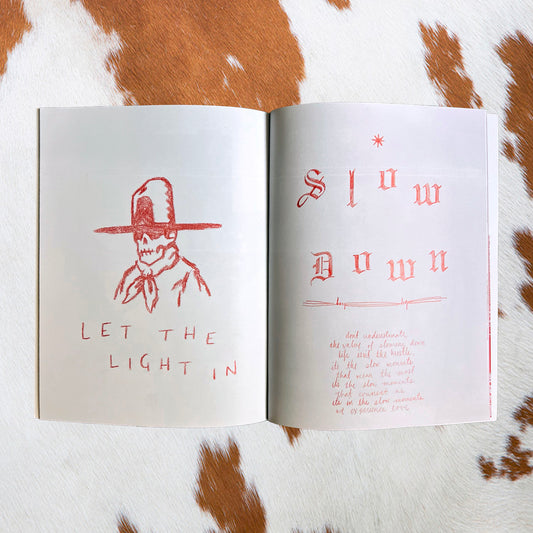 LET THE
LIGHT IN
Slow
Down
dont underestimate
the value of slowing down
life isnt the hustle
its the slow moments
that mean the most
its the slow moments
that connect us
its in the slow moments
we experience love